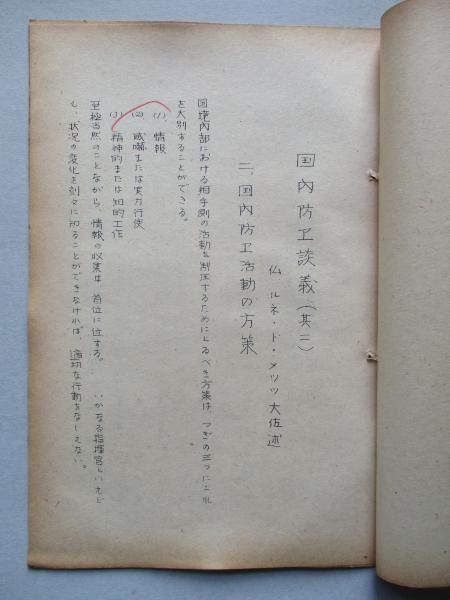 国内防卫談義(其二)
仏 ルネ・ド・メッツ大佐述
二、国内防卫活動の方策
国境内部における相手側の活動を制圧するためにとるべき方策は、つぎの三つにこれ
を大別することができる。
(1) 情報
(2) 威嚇または実力行使
(3) 精神的または知的工作
至極当然のことながら、情報の収集は、首位に位する。 いかなる指揮官といえど
も、状況の変化を刻々に知ることができなければ、適切な行動をなしえない。